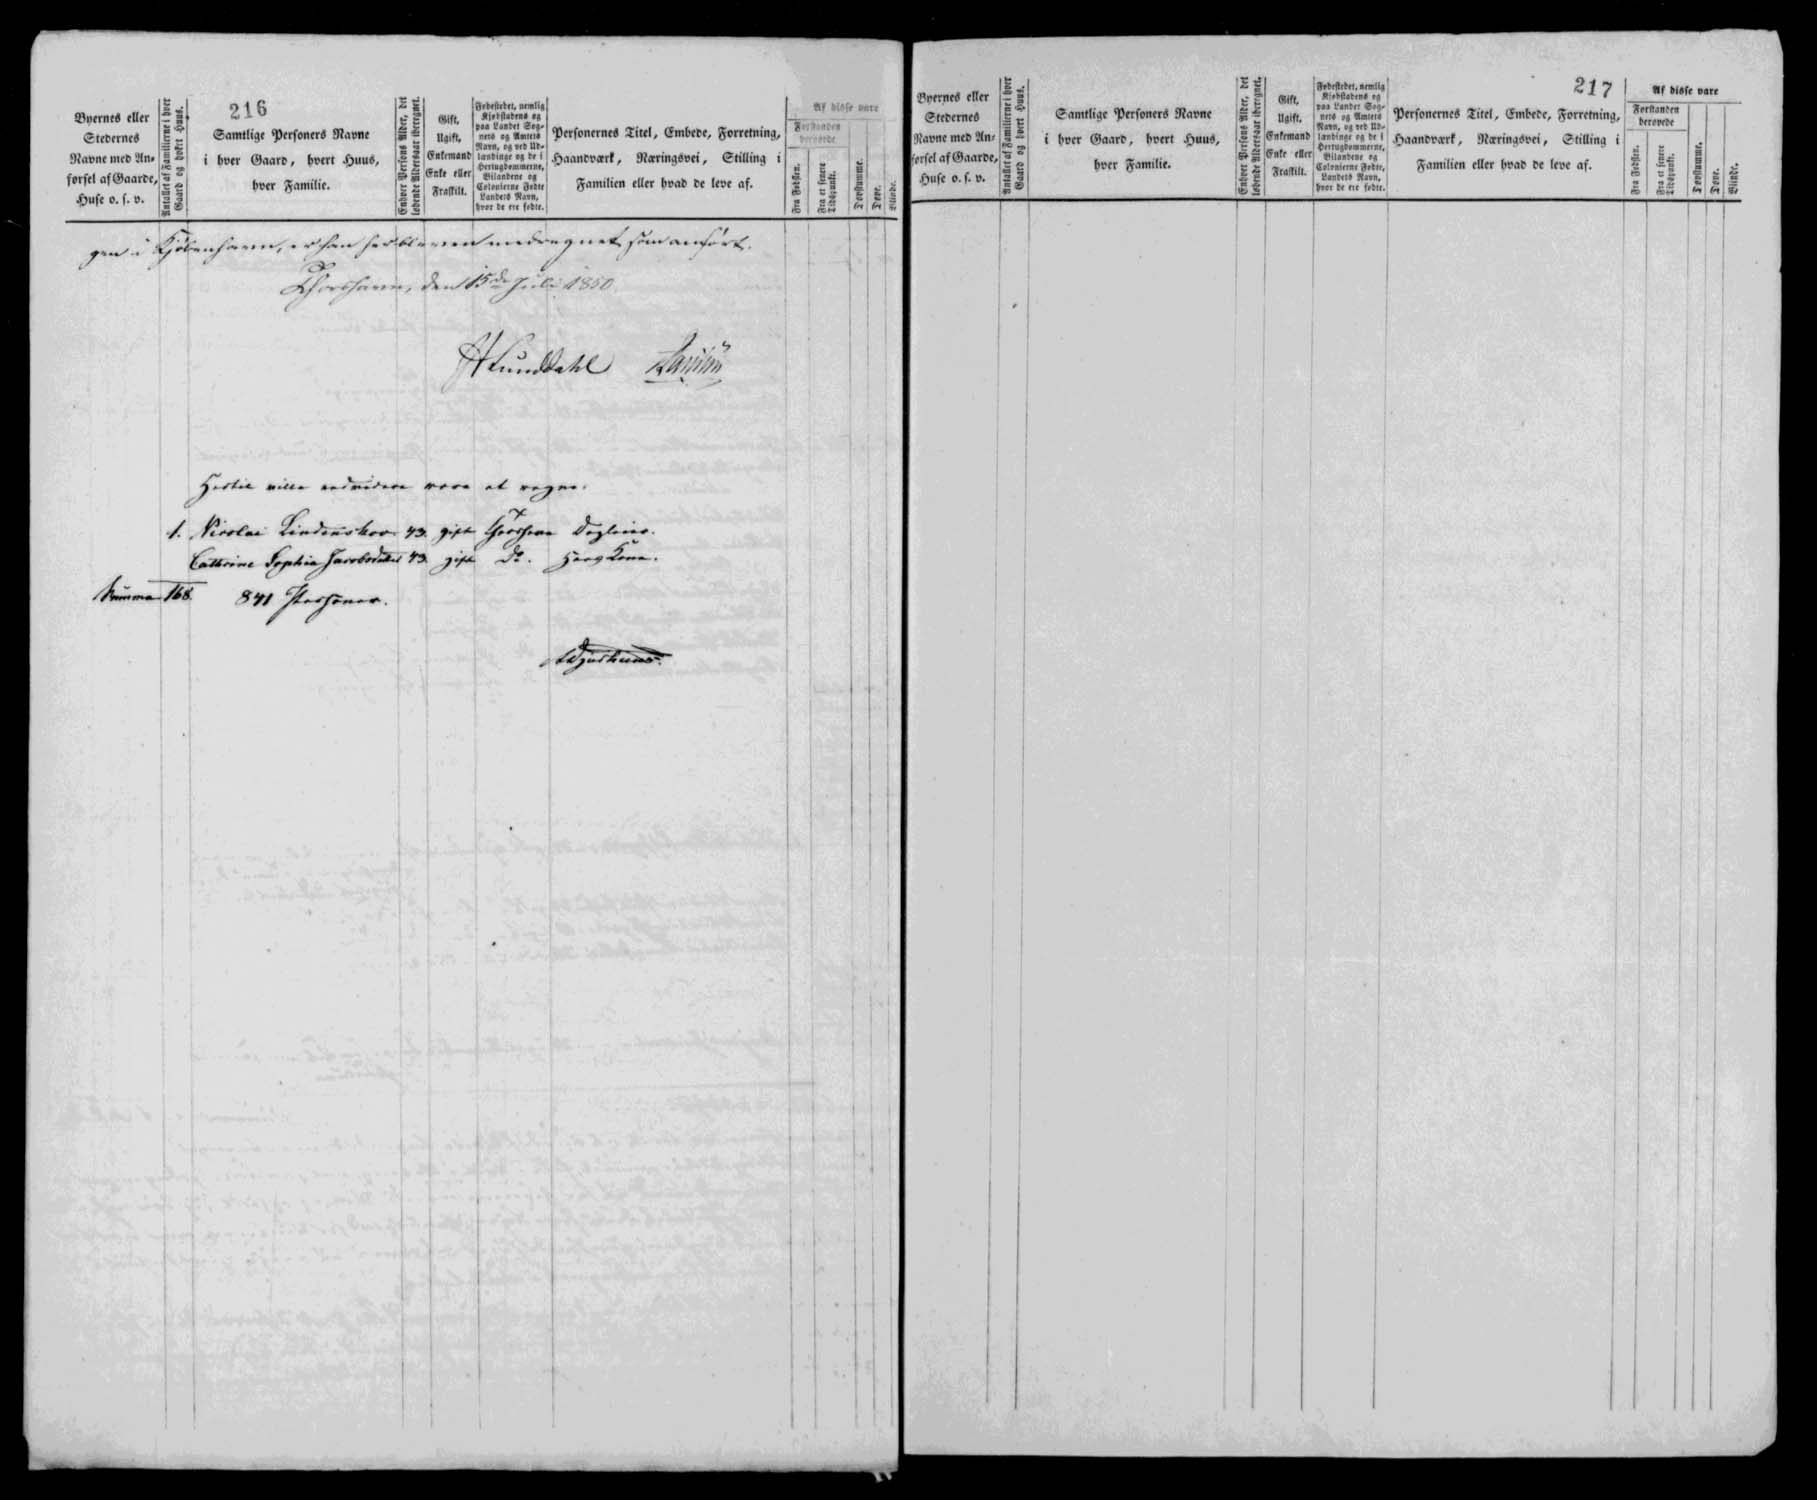 216
Byernes eller
Stedernes
Navne med An-
førsel af Gaarde,
Huse o. s. v.
Antallet af Familierne i hver
Gaard og hvert Huus.
Samtlige Personers Navne
i hver Gaard, hvert Huus,
hver Familie.
Enhver Persons Alder, det
løbende Aldersaar iberegnet.
Gift,
Ugift,
Enkemand
Enke eller
Fraskilt.
Fødestedet, nemlig
Kjøbstadens og
paa Landet Sog-
nets og Amtets
Navn, og ved Ud-
lændinge og de i
Hertugdømmerne,
Bilandene og
Colonierne Fødte
Landets Navn,
hvor de ere fødte.
Personernes Titel, Embede, Forretning,
Haandværk, Næringsvei, Stilling i
Familien eller hvad de leve af.
Af disse vare
Forstanden
berøvede
Fra Fødslen.
Fra et senere
Tidspunkt.
Døvstumme.
Døve.
Blinde.
gen i Kjøbenhavn, er han her bleven medregnet som anført.
Thorshavn, den 15de Juli 1850.
HLunddahl
Hertil ville endvidere være at regne:
1. Nicolai Lindenskov 43. gift Thorshavn Dagleier.
Cathrine Sophia Jacobsdatter 43. gift Do. Hans Kone.
Summa 168. 841 Personer.
217
Byernes eller
Stedernes
Navne med An-
førsel af Gaarde,
Huse o. s. v.
Antallet af Familierne i hver
Gaard og hvert Huus.
Samtlige Personers Navne
i hver Gaard, hvert Huus,
hver Familie.
Enhver Persons Alder, det
løbende Aldersaar iberegnet.
Gift,
Ugift,
Enkemand
Enke eller
Fraskilt.
Fødestedet, nemlig
Kjøbstadens og
paa Landet Sog-
nets og Amtets
Navn, og ved Ud-
lændinge og de i
Hertugdømmerne,
Bilandene og
Colonierne Fødte,
Landets Navn,
hvor de ere fødte.
Personernes Titel, Embede, Forretning,
Haandværk, Næringsvei, Stilling i
Familien eller hvad de leve af.
Af disse vare
Forstanden
berøvede
Fra Fødslen.
Fra et senere
Tidspunkt.
Døvstumme.
Døve.
Blinde.